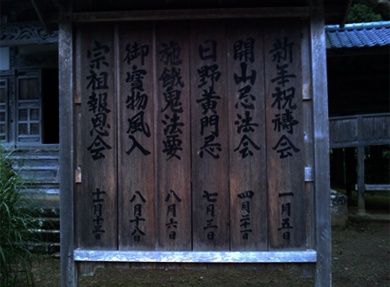 新年祝祷会 一月五日
開山忌法会 四月二十一日
日野黄門忌 七月三日
施餓鬼法要 八月六日
御宝物風入 八月十八日
宗祖報恩会